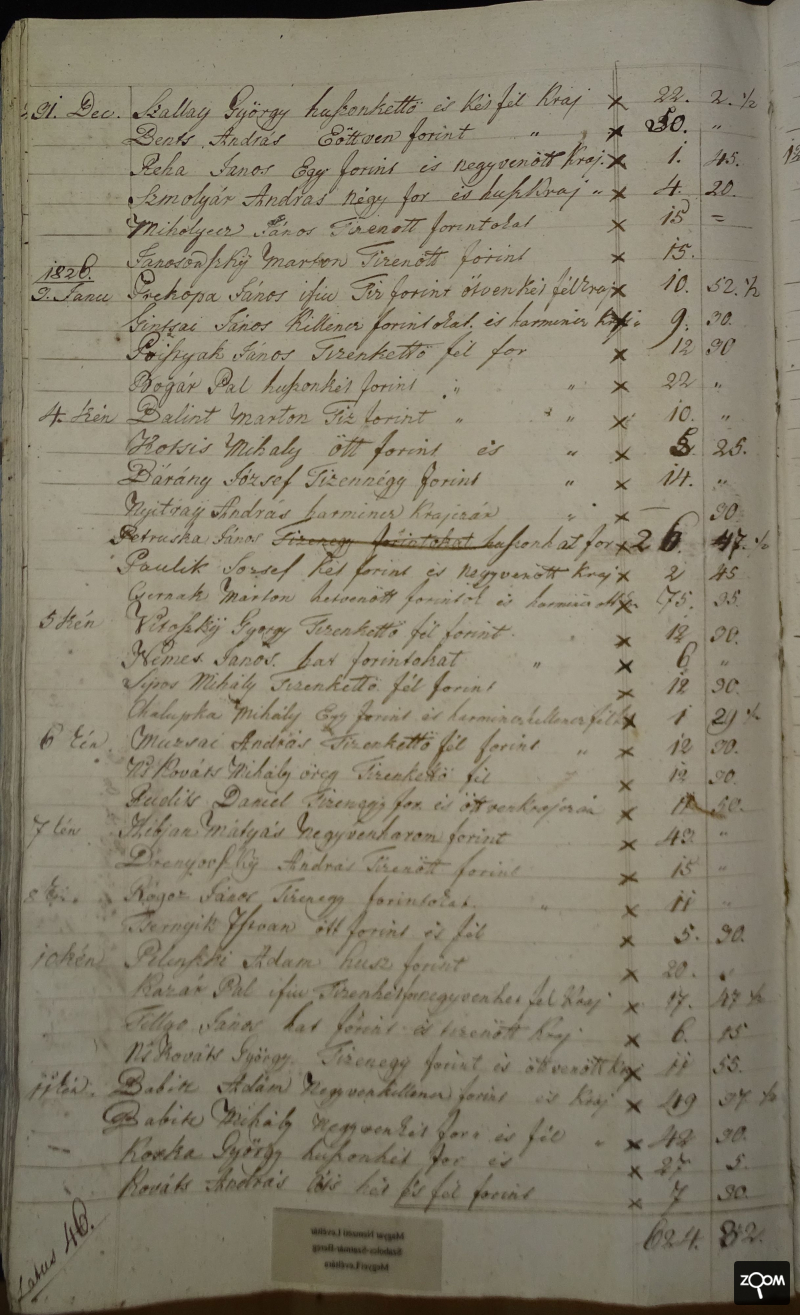 31. Dec. Szallay György huszonkettö és két fél Kraj × 22. 2. ½
Bents András Eöttven forint " × 50. "
Reha Janos Egy forint is negyvenött Kraj. × 1. 45.
Szmolyár Andras négy for és huszKraj " × 4. 20.
Mihalyecz János Tizenött forintokat × 15 =
Janosovszky Marton Tizenött forint × 15.
1826.
3. Janu Prekopa János ifiu Tiz forint ötvenkét félkraj × 10. 52. ½
Gintsai János Killencz forintokat és harmincz Kraj × 9. 30.
János Tizenkettö fél for × 12 30
Bogár Pal huszonkét forint " " × 22 "
4. kén Balint Marton Tiz forint " " " × 10. "
Kotsis Mihaly ött forint és " × 5 25.
Bárány József Tizennégy forint " × 14. "
Nyitray András harmincz Krajczár " × — 30
Petruska János Tizenegy forintokat huszonhat for × 26. 47. ½
Paulik Jozsef két forint és negyvenött Kraj × 2 45
Csernak Marton hetvenött forintot és × 75. 35.
5 kén Vitoszkÿ György Tizenkettö fél forint " × 12 30.
Nemes Janos. hat forintokat " × 6 "
Sipos Mihály Tizenkettö fél forint × 12 30
Chalupka Mihály Egy forint és harminczkillencz fél × 1 39 ½
6 kén. Muzsai András Tizenkettö fél forint " × 12 30.
Nś Kováts Mihály öreg Tizenkettö fél × 12 30.
Rudik Daniel Tizenegy for. és öttvenkrajczár × 11 50.
7 kén Mátyás Negyvenharom forint × 43. "
András Tizenött forint × 15 "
8 kén. János Tizenegy forintokat. " × 11 "
Tsernyik Istvan ött forint és fél × 5. 30.
10 kén Adam husz forint × 20. "
Kazár Pal ifiu Tizenhét for negyvenhet fél Kraj × 17. 47 ½
Tillgo János hat forint és tizenött Kraj × 6. 15
Nś Kováts György Tizenegy forint és öttvenött × 11 55.
11 kén. Babik Adám Negyvenkillencz forint és Kraj × 49 37 ½
Babik Mihály negyvenkét for: és fél " × 42 30.
Koska György huszonhét for és × 27 5.
Kováts András hét és fél forint × 7 30.
624. 32.
Latus 46.
Magyar Nemzeti Levéltár
Szabolcs-Szatmár-Bereg
Megyei Levéltára
ZOOM